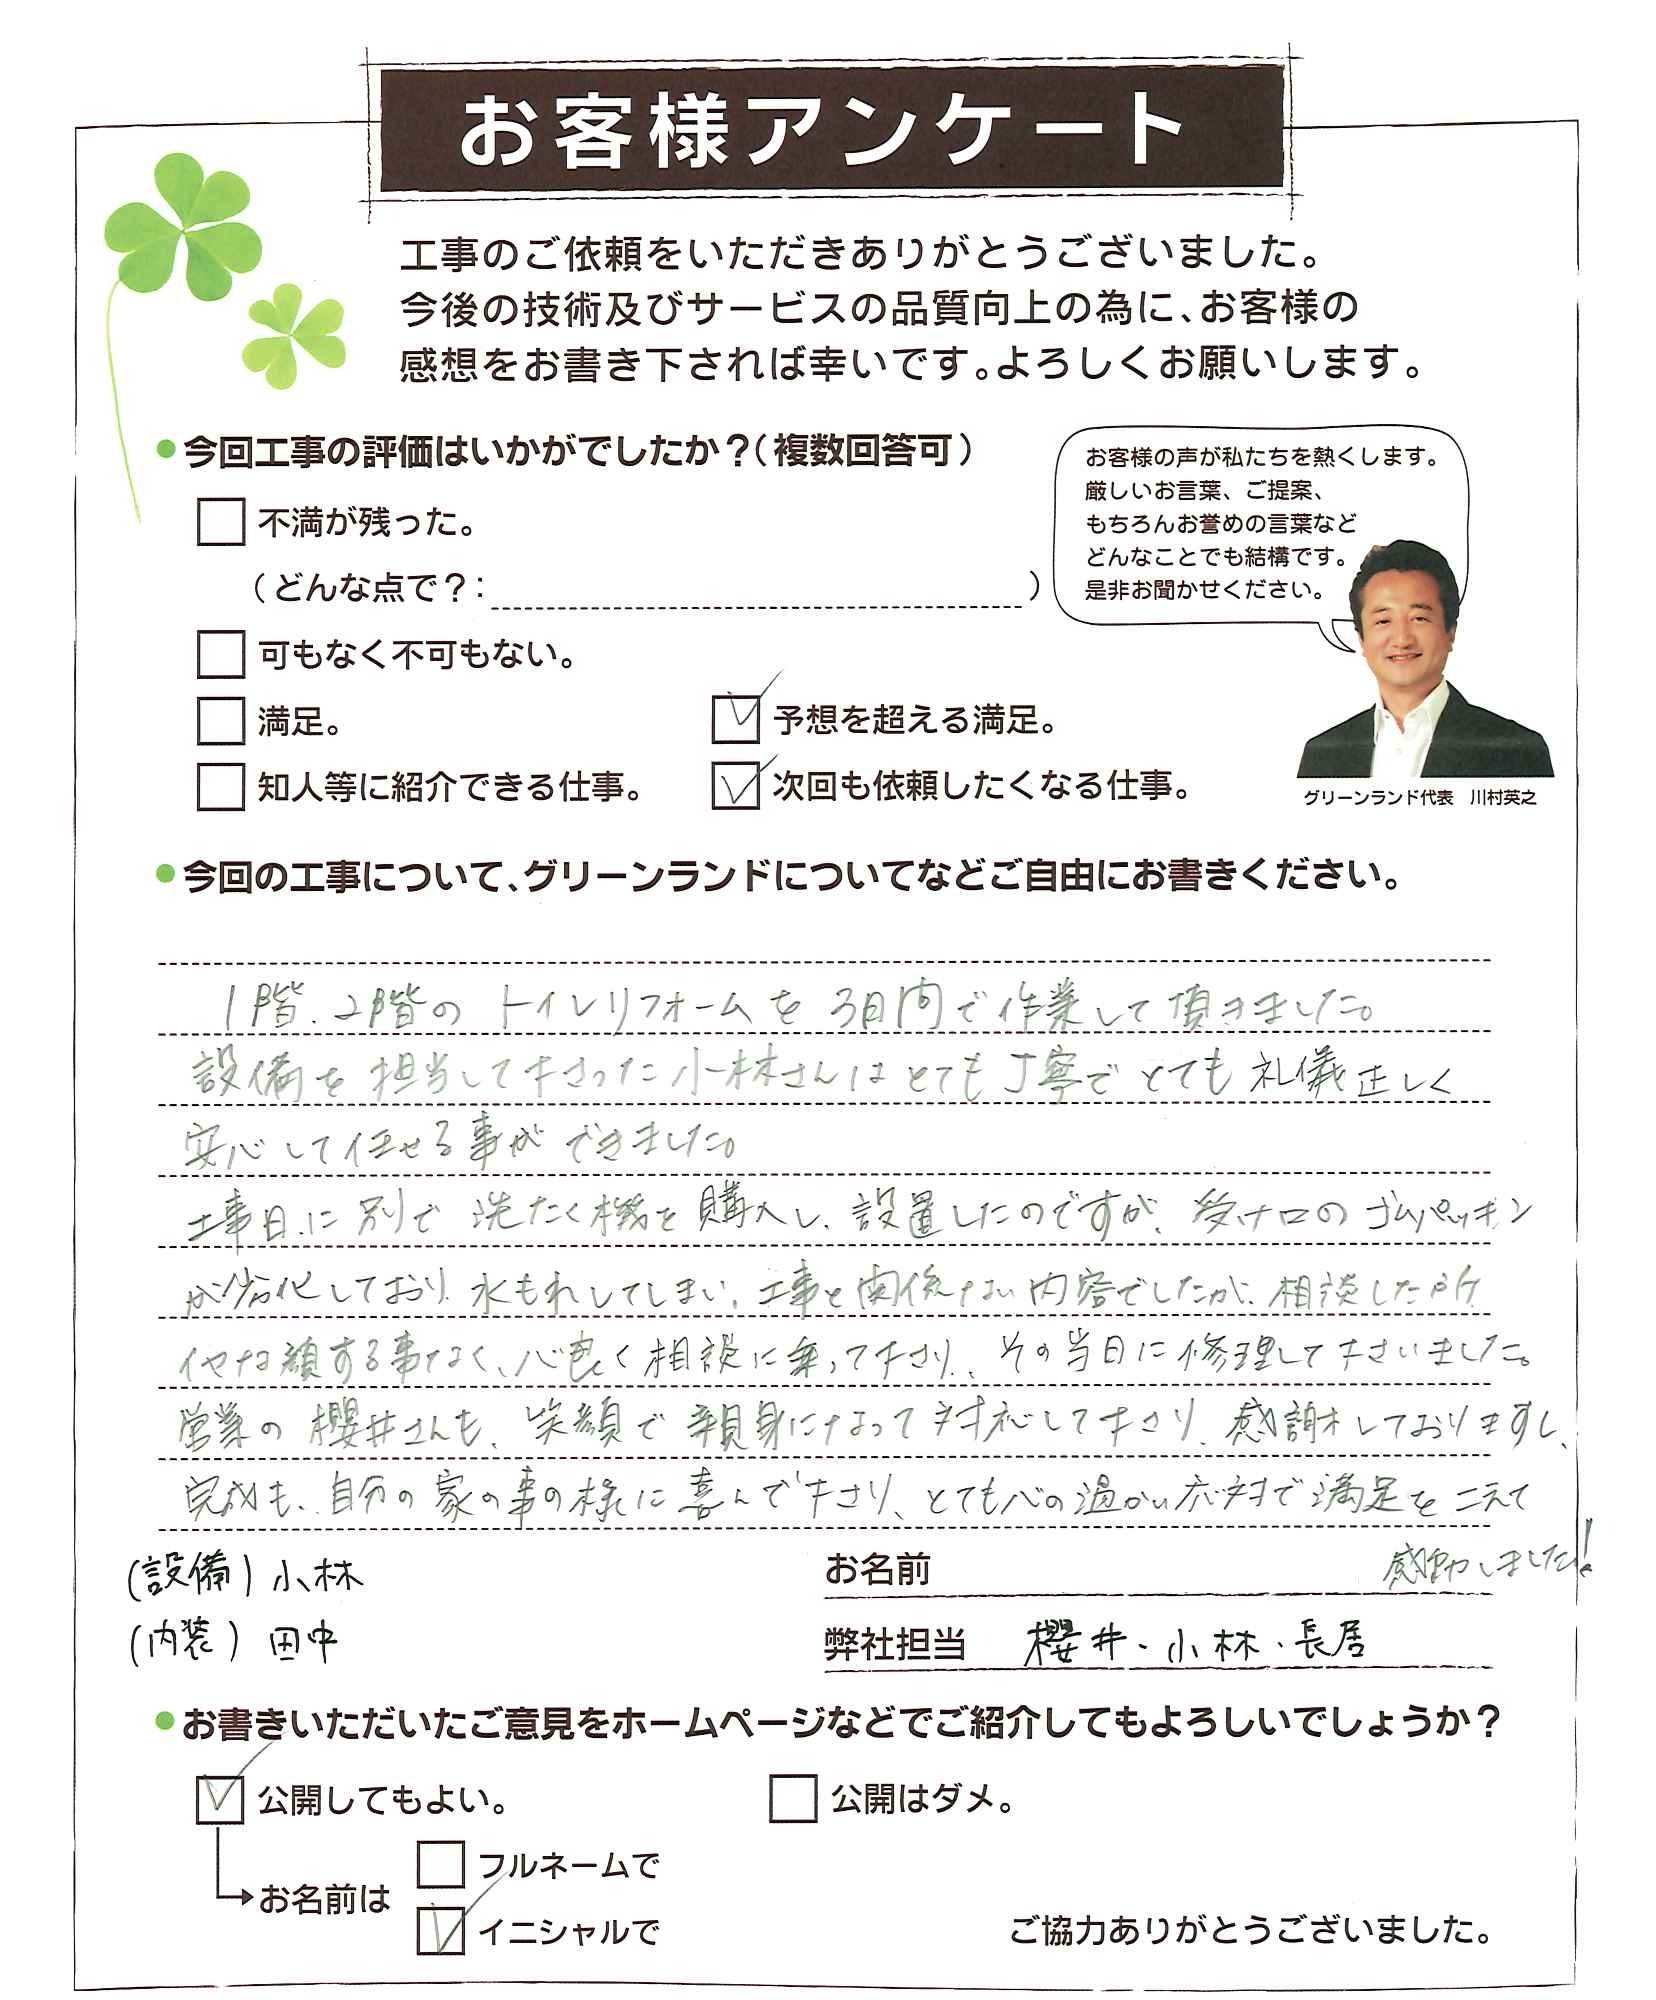 お客様アンケート
工事のご依頼をいただきありがとうございました。
今後の技術及びサービスの品質向上の為に、お客様の
感想をお書き下されば幸いです。よろしくお願いします。
●今回工事の評価はいかがでしたか？（複数回答可）
不満が残った。
（どんな点で？：　）
可もなく不可もない。
満足。
予想を超える満足。
知人等に紹介できる仕事。
次回も依頼したくなる仕事。
お客様の声が私たちを熱くします。
厳しいお言葉、ご提案、
もちろんお誉めの言葉など
どんなことでも結構です。
是非お聞かせください。
グリーンランド代表　川村英之
●今回の工事について、グリーンランドについてなどご自由にお書きください。
1階、2階の トイレリフォームを 3日間で作業して頂きました。
設備を担当して下さった小林さんは とても丁寧で とても礼儀正しく
安心して任せる事ができました。
工事日に別で 洗たく機を購入し、設置したのですが、受け口の ゴムパッキン
が劣化しており 水もれしてしまい、工事と関係ない内容でしたが、相談した所
イヤな顔する事なく、心良く相談に乗って下さり、その当日に修理して下さいました。
営業の櫻井さんも、笑顔で 親身になって対応して下さり、感謝しておりますし、
完成も、自分の家の事の様に喜んで下さり、とても心の温かい応対で満足をこえて
感動しました!
(設備) 小林
(内装) 田中
お名前
弊社担当　櫻井・小林・長居
●お書きいただいたご意見をホームページなどでご紹介してもよろしいでしょうか？
公開してもよい。
公開はダメ。
お名前は
フルネームで
イニシャルで
ご協力ありがとうございました。